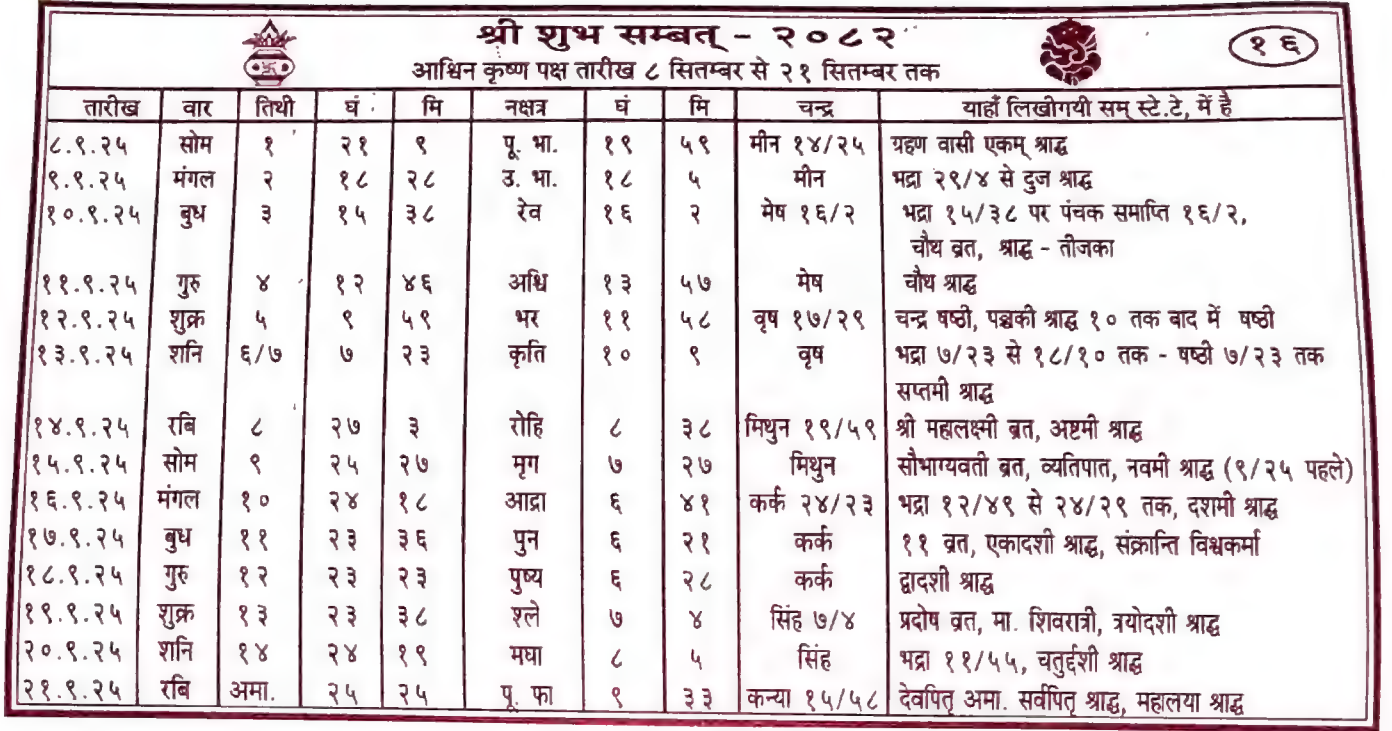 श्री शुभ सम्बत् - २०८२
१६
आश्विन कृष्ण पक्ष तारीख ८ सितम्बर से २१ सितम्बर तक
तारीख वार तिथी घं मि नक्षत्र घं मि चन्द्र याहाँ लिखीगयी सम् स्टे.टे, में है
८.९.२५ सोम १ २१ ९ पू. भा. १९ ५९ मीन १४/२५ ग्रहण वासी एकम् श्राद्ध
९.९.२५ मंगल २ १८ २८ उ. भा. १८ ५ मीन भद्रा २९/४ से दुज श्राद्ध
१०.९.२५ बुध ३ १५ ३८ रेव १६ २ मेष १६/२ भद्रा १५/३८ पर पंचक समाप्ति १६/२,
चौथ व्रत, श्राद्ध - तीजका
११.९.२५ गुरु ४ १२ ४६ अश्वि १३ ५७ मेष चौथ श्राद्ध
१२.९.२५ शुक्र ५ ९ ५९ भर ११ ५८ वृष १७/२९ चन्द्र षष्ठी, पञ्चकी श्राद्ध १० तक बाद में षष्ठी
१३.९.२५ शनि ६/७ ७ २३ कृति १० ९ वृष भद्रा ७/२३ से १८/१० तक - षष्ठी ७/२३ तक
सप्तमी श्राद्ध
१४.९.२५ रबि ८ २७ ३ रोहि ८ ३८ मिथुन १९/५९ श्री महालक्ष्मी व्रत, अष्टमी श्राद्ध
१५.९.२५ सोम ९ २५ २७ मृग ७ २७ मिथुन सौभाग्यवती व्रत, व्यतिपात, नवमी श्राद्ध (९/२५ पहले)
१६.९.२५ मंगल १० २४ १८ आद्रा ६ ४१ कर्क २४/२३ भद्रा १२/४९ से २४/२९ तक, दशमी श्राद्ध
१७.९.२५ बुध ११ २३ ३६ पुन ६ २१ कर्क ११ व्रत, एकादशी श्राद्ध, संक्रान्ति विश्वकर्मा
१८.९.२५ गुरु १२ २३ २३ पुष्य ६ २८ कर्क द्वादशी श्राद्ध
१९.९.२५ शुक्र १३ २३ ३८ श्ले ७ ४ सिंह ७/४ प्रदोष व्रत, मा. शिवरात्री, त्रयोदशी श्राद्ध
२०.९.२५ शनि १४ २४ १९ मघा ८ ५ सिंह भद्रा ११/५५, चतुर्द्दशी श्राद्ध
२१.९.२५ रबि अमा. २५ २५ पू. फा ९ ३३ कन्या १५/५८ देवपितृ अमा. सर्वपितृ श्राद्ध, महालया श्राद्ध